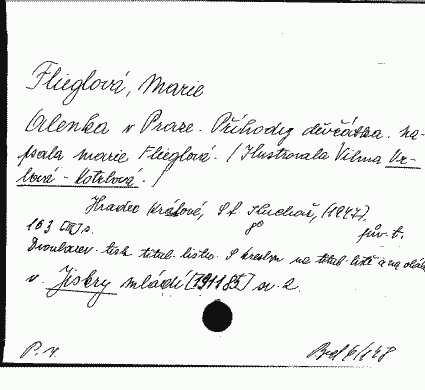 Flieglová, Marie
Alenka v Praze. Příhody děvčátka. na-
psala Marie Flieglová. /Ilustrovala Vilma Vr-
bová - Kotrbová./
Hradec Králové, St. Kuchař, (1947).
163 s. pův. t.
Dvoubarev. tisk titul. listu. S kresbou na titul. listě a na obál.
v. Jiskry mládí sv. 2.
P. V.